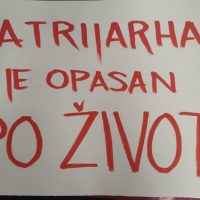 ATRIJARHA
JE OPASAN
PO ŽIVOT